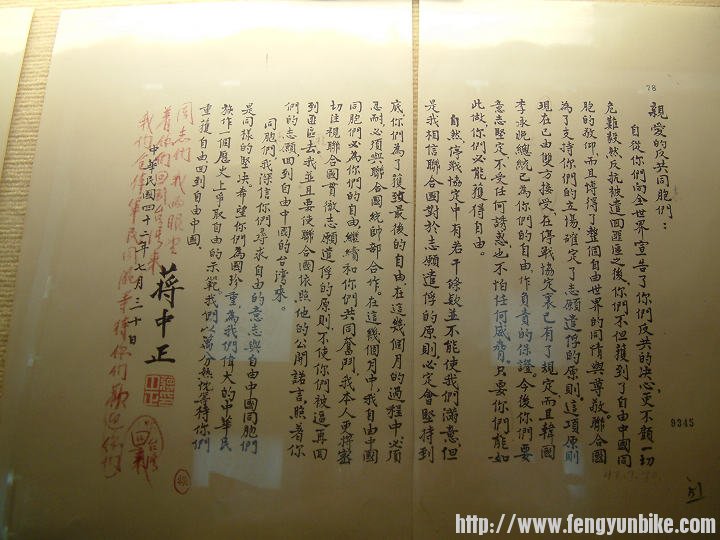 78
親愛的反共同胞們：
自從你們向全世界宣告了你們反共的決心，更不顧一切
危難毅然反抗被遣回匪區之後，你們不但獲到了自由中國同
胞的敬仰，而且博得了整個自由世界的同情與尊敬。聯合國
為了支持你們的立場，確定了志願遣俘的原則。這項原則
現在已由雙方接受，在停戰協定裏已有了規定，而且韓國
李承晚總統已為你們的自由作負責的保證，今後你們要
意志堅定，不受任何誘惑，也不怕任何威脅，只要你們能如
此做，你們必能獲得自由。
自然停戰協定中有若干條款並不能使我們滿意，但
是我相信聯合國對於志願遣俘的原則，必定會堅持到
底，你們為了獲致最後的自由，在這幾個月的過程中，必須
忍耐，必須與聯合國統帥部合作。在這幾個月中，我自由中國
同胞們必為你們的自由，繼續和你們共同奮鬥，我本人更將密
切注視聯合國貫徹志願遣俘的原則，不使你們被逼再回
到匪區去，我並且要使聯合國依照他的公開諾言，照着你
們的志願回到自由中國的台灣來。
同胞們，我深信你們尋求自由的意志與自由中國同胞們
是同樣的堅決，希望你們為國珍重，為我們偉大的中華民
族作一個歷史上爭取自由的示範，我們以萬分熱忱等待你們
重獲自由回到自由中國。
蔣中正
中華民國四十二年七月三十日
同志們我的眼望
着你們回到台灣來
我們全体軍民同胞等待你們歡迎你們
9345
51
http://www.fengyunbike.com